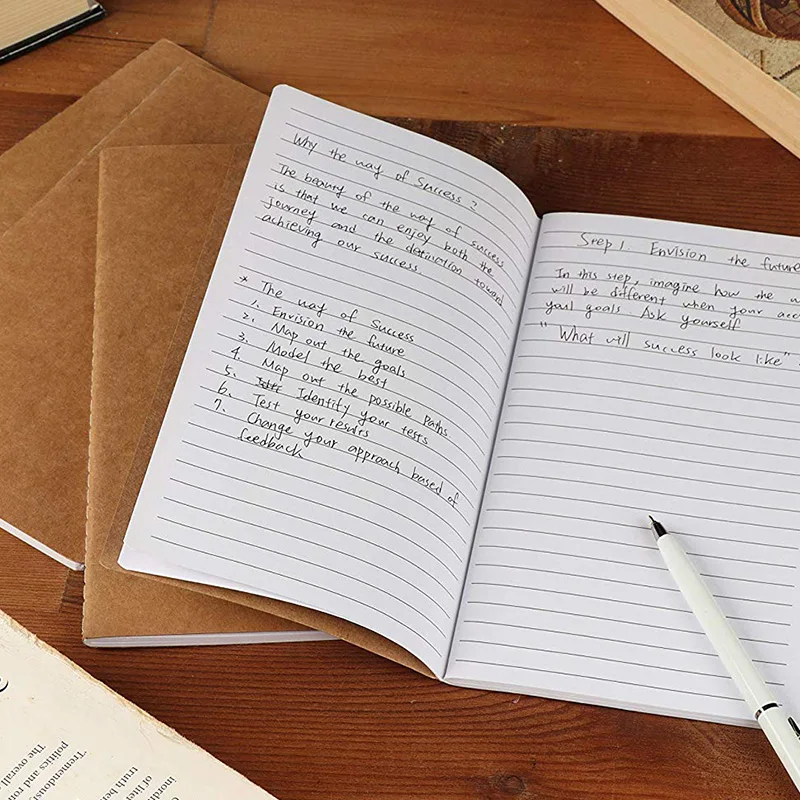 Why the way of Success?
The beauty of the way of success
is that we can enjoy both the
journey and the detinction toward
achieving our success.
* The way of Success
1. Envision the future
2. Map out the goals
3. Model the best
4. Map out the possible paths
5. Identify your tests
6. Test your results
7. Change your approach based of
feedback
Step 1. Envision the future
In this step, imagine how the
will be different when your
your goals. Ask yourself
"What will success look like"
"Tremendously
politics and
The overall
truth
of